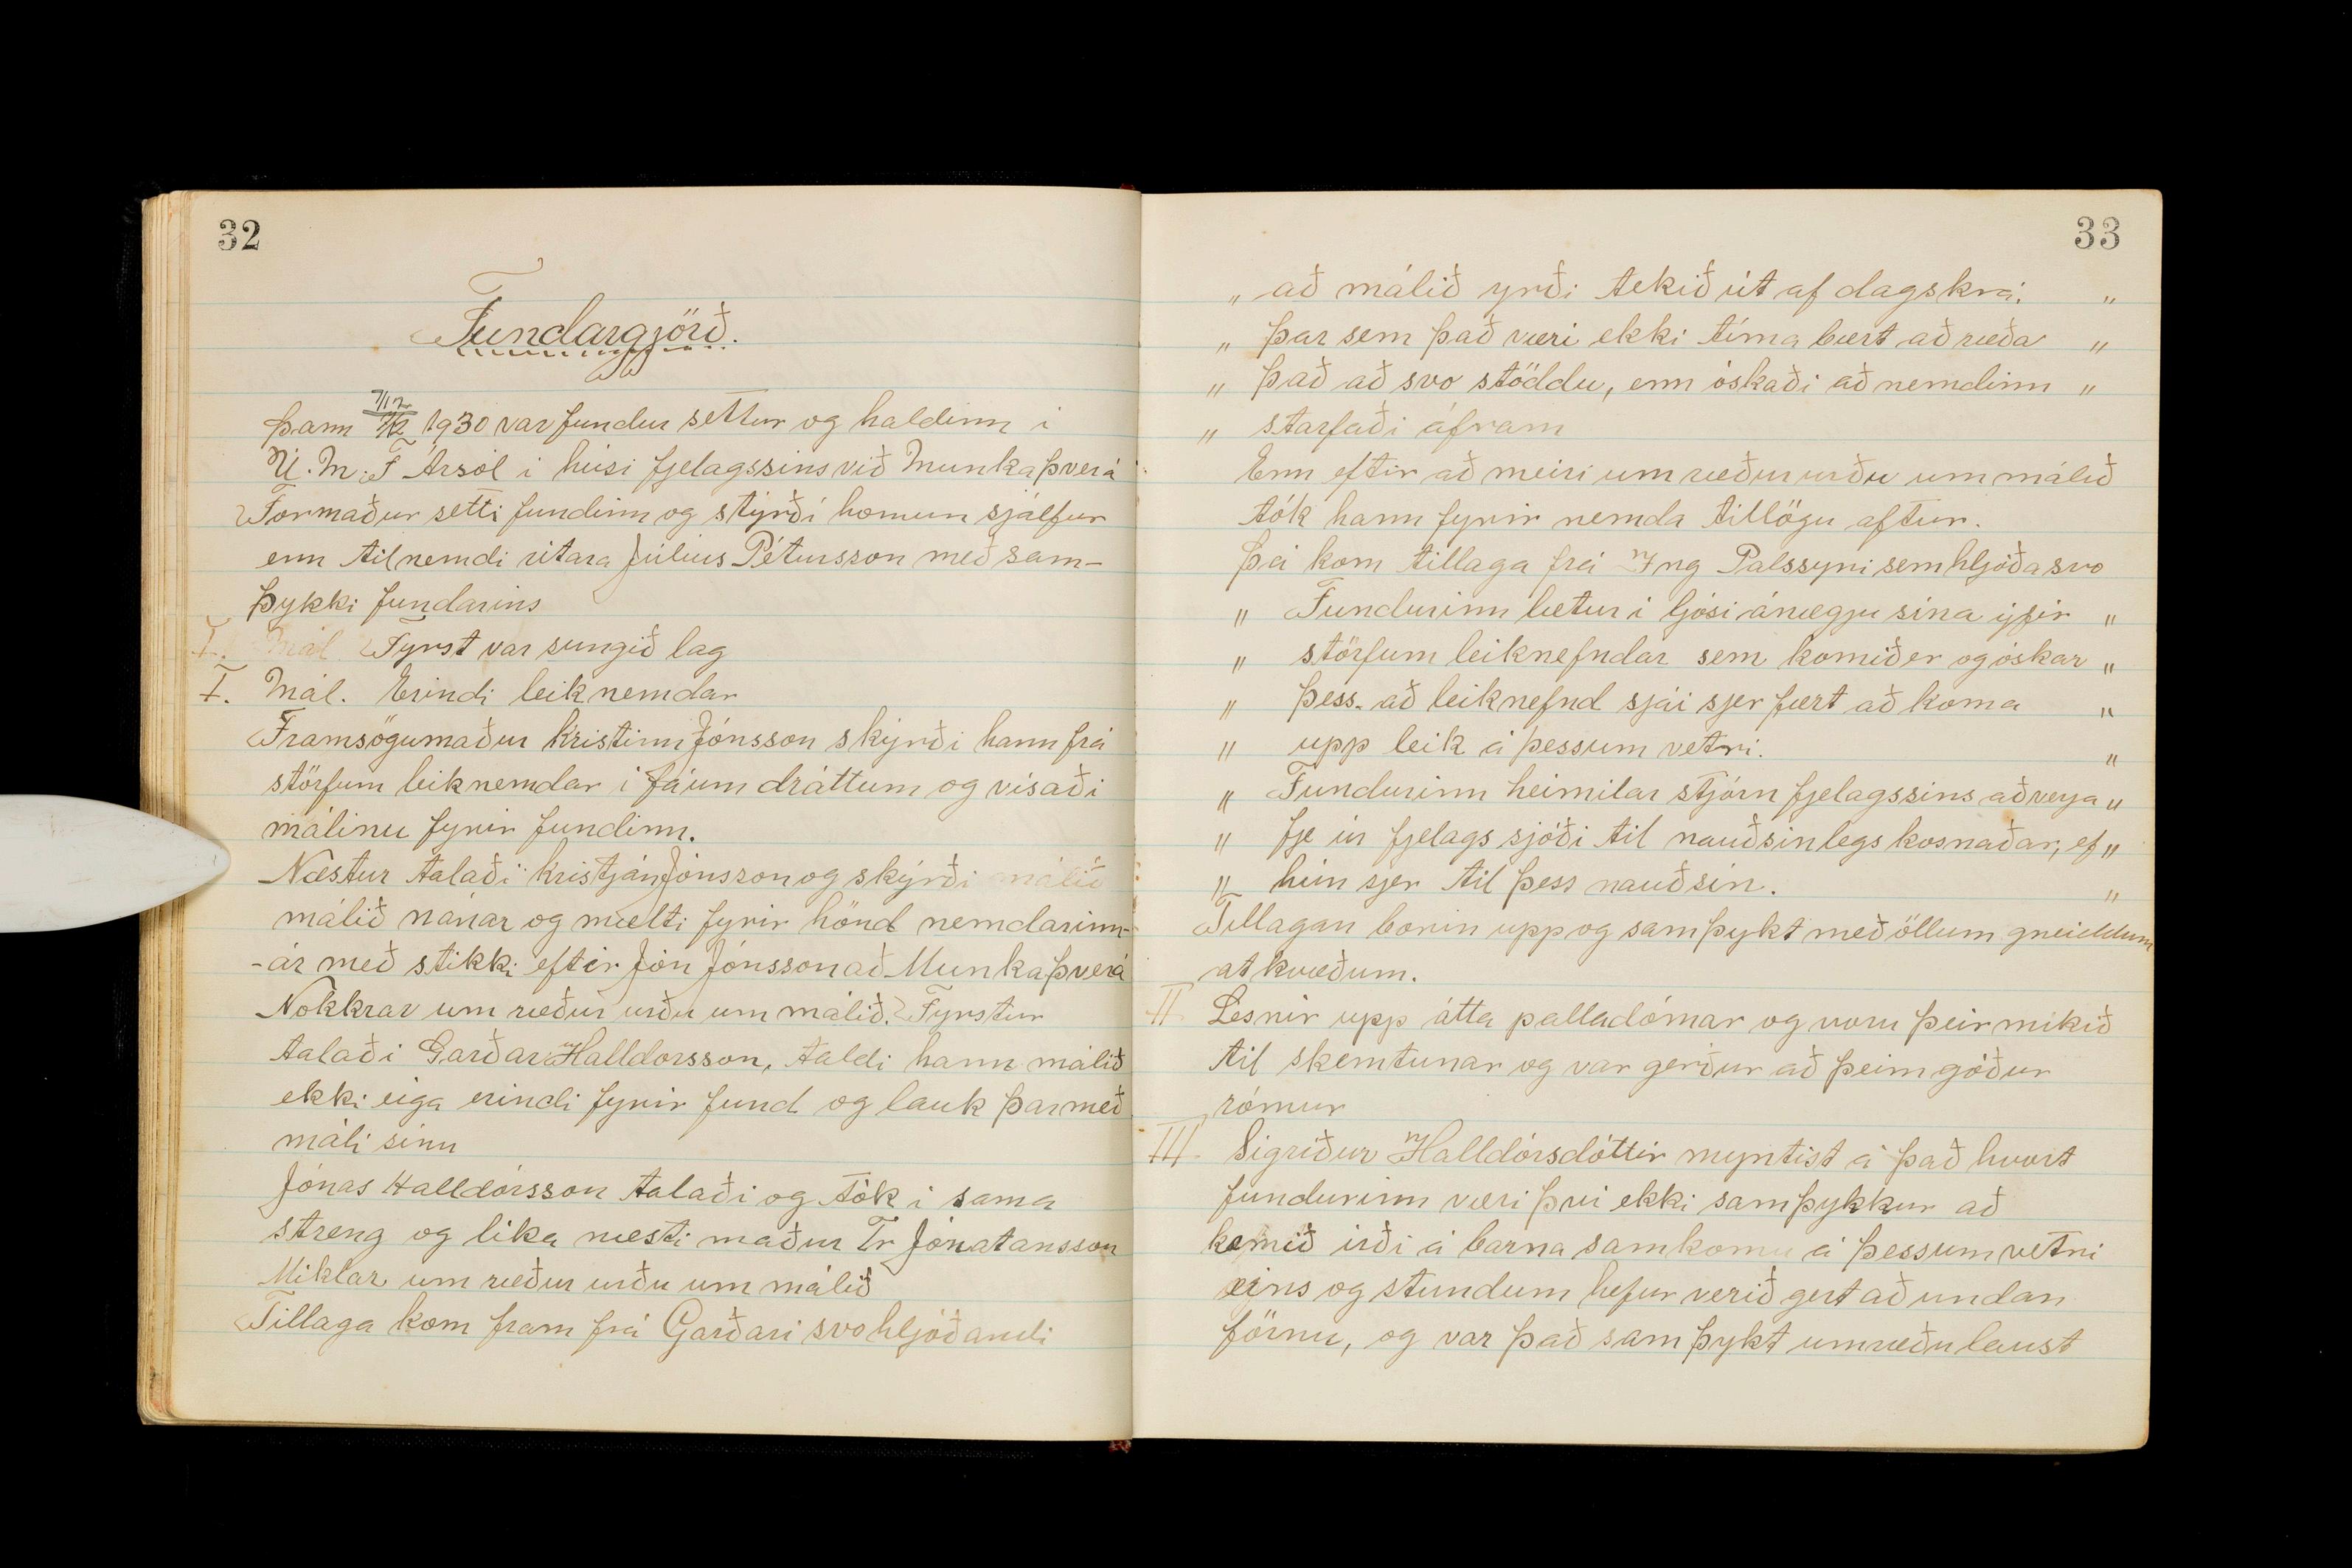 32
Fundargjörð.
7/12
Þann 7/12 1930 var fundur settur og haldinn í
U.M.F Ársól í húsi fjelagssins við Munkaþverá
Formaður setti fundinn og stýrði honum sjálfur
enn tilnemdi ritara Júlíus Pétursson með sam-
þykki fundarins
I. Mál Fyrst var sungið lag
I. Mál. Erindi leiknemdar
Framsögumaður Kristinn Jónsson skýrði hann frá
störfum leiknemdar í fáum dráttum og vísaði
málinu fyrir fundinn.
Næstur talaði Kristján Jónsson og skýrði málið
málið nánar og mælti fyrir hönd nemdarinn-
-ar með stikki eftir Jón Jónsson að Munkaþverá
Nokkrar um ræður urðu um málið. Fyrstur
talaði Garðar Halldorsson, taldi hann málið
ekki eiga erindi fyrir fund og lauk þar með
máli sínu
Jónas Halldórsson talaði og tók í sama
streng og líka næsti maður Tr Jónatansson
Miklar um ræður urðu um málið
Tillaga kom fram frá Garðari svo hljóðandi
33
„ að málið yrði tekið út af dagskrá. „
„ þar sem það væri ekki tíma bært að ræða „
„ það að svo stöddu, enn óskaði að nemdinn „
„ starfaði áfram
Enn eftir að meiri um ræður urðu um málið
tók hann fyrir nemda tillögu aftur.
Þá kom tillaga frá Ing Palssyni sem hljóða svo
„ Fundurinn lætur í ljósi ánægju sína yfir „
„ störfum leiknefndar sem komið er og óskar „
„ þess. að leiknefnd sjái sjer fært að koma „
„ upp leik á þessum vetri. „
„ Fundurinn heimilar stjórn fjelagssins að verja „
„ fje úr fjelags sjóði til nauðsinlegs kosnaðar, ef „
„ hún sjer til þess nauðsin. „
Tillagan borin upp og samþykt með öllum greiddum
at kvæðum.
II Lesnir upp átta palladómar og voru þeir mikið
til skemtunar og var gerður að þeim góður
rómur
III Sigríður Halldórsdóttir myntist á það hvort
fundurinn væri því ekki samþykkur að
komið irði á barna samkomu á þessum vetri
eins og stundum hefur verið gert að undan
förnu, og var það samþykt umræðulaust